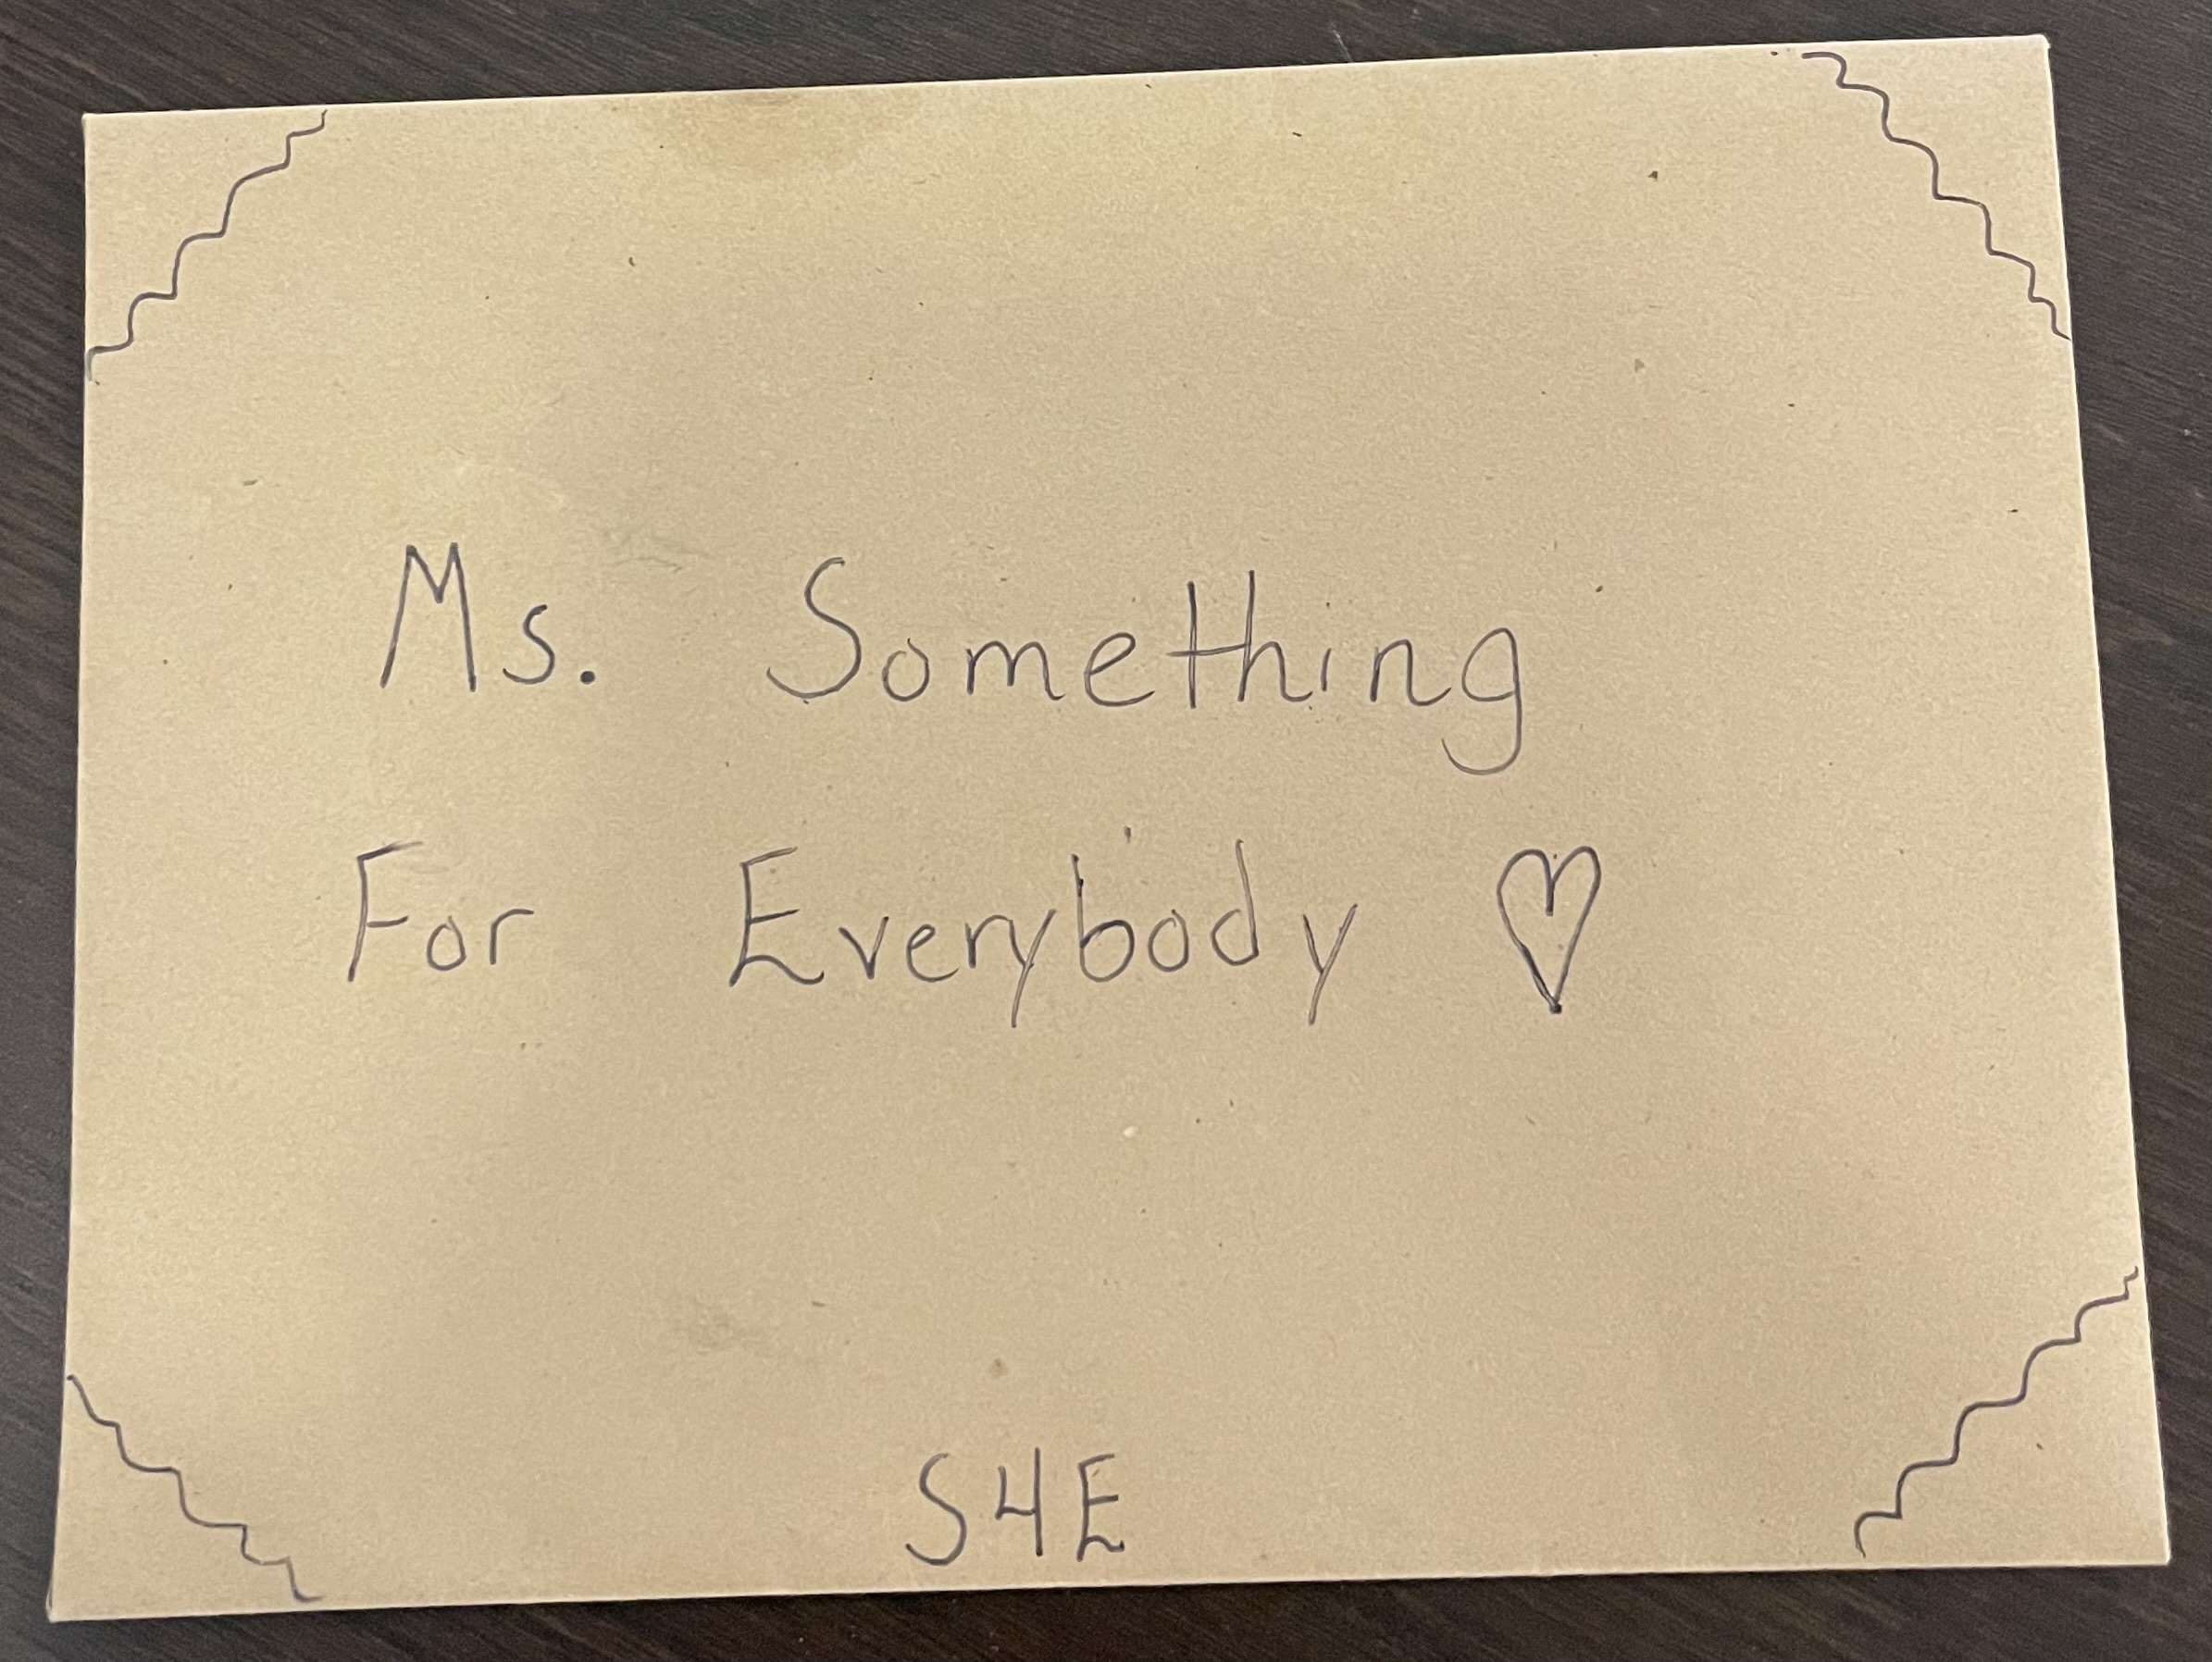 Ms. Something
For Everybody ♡
S4E